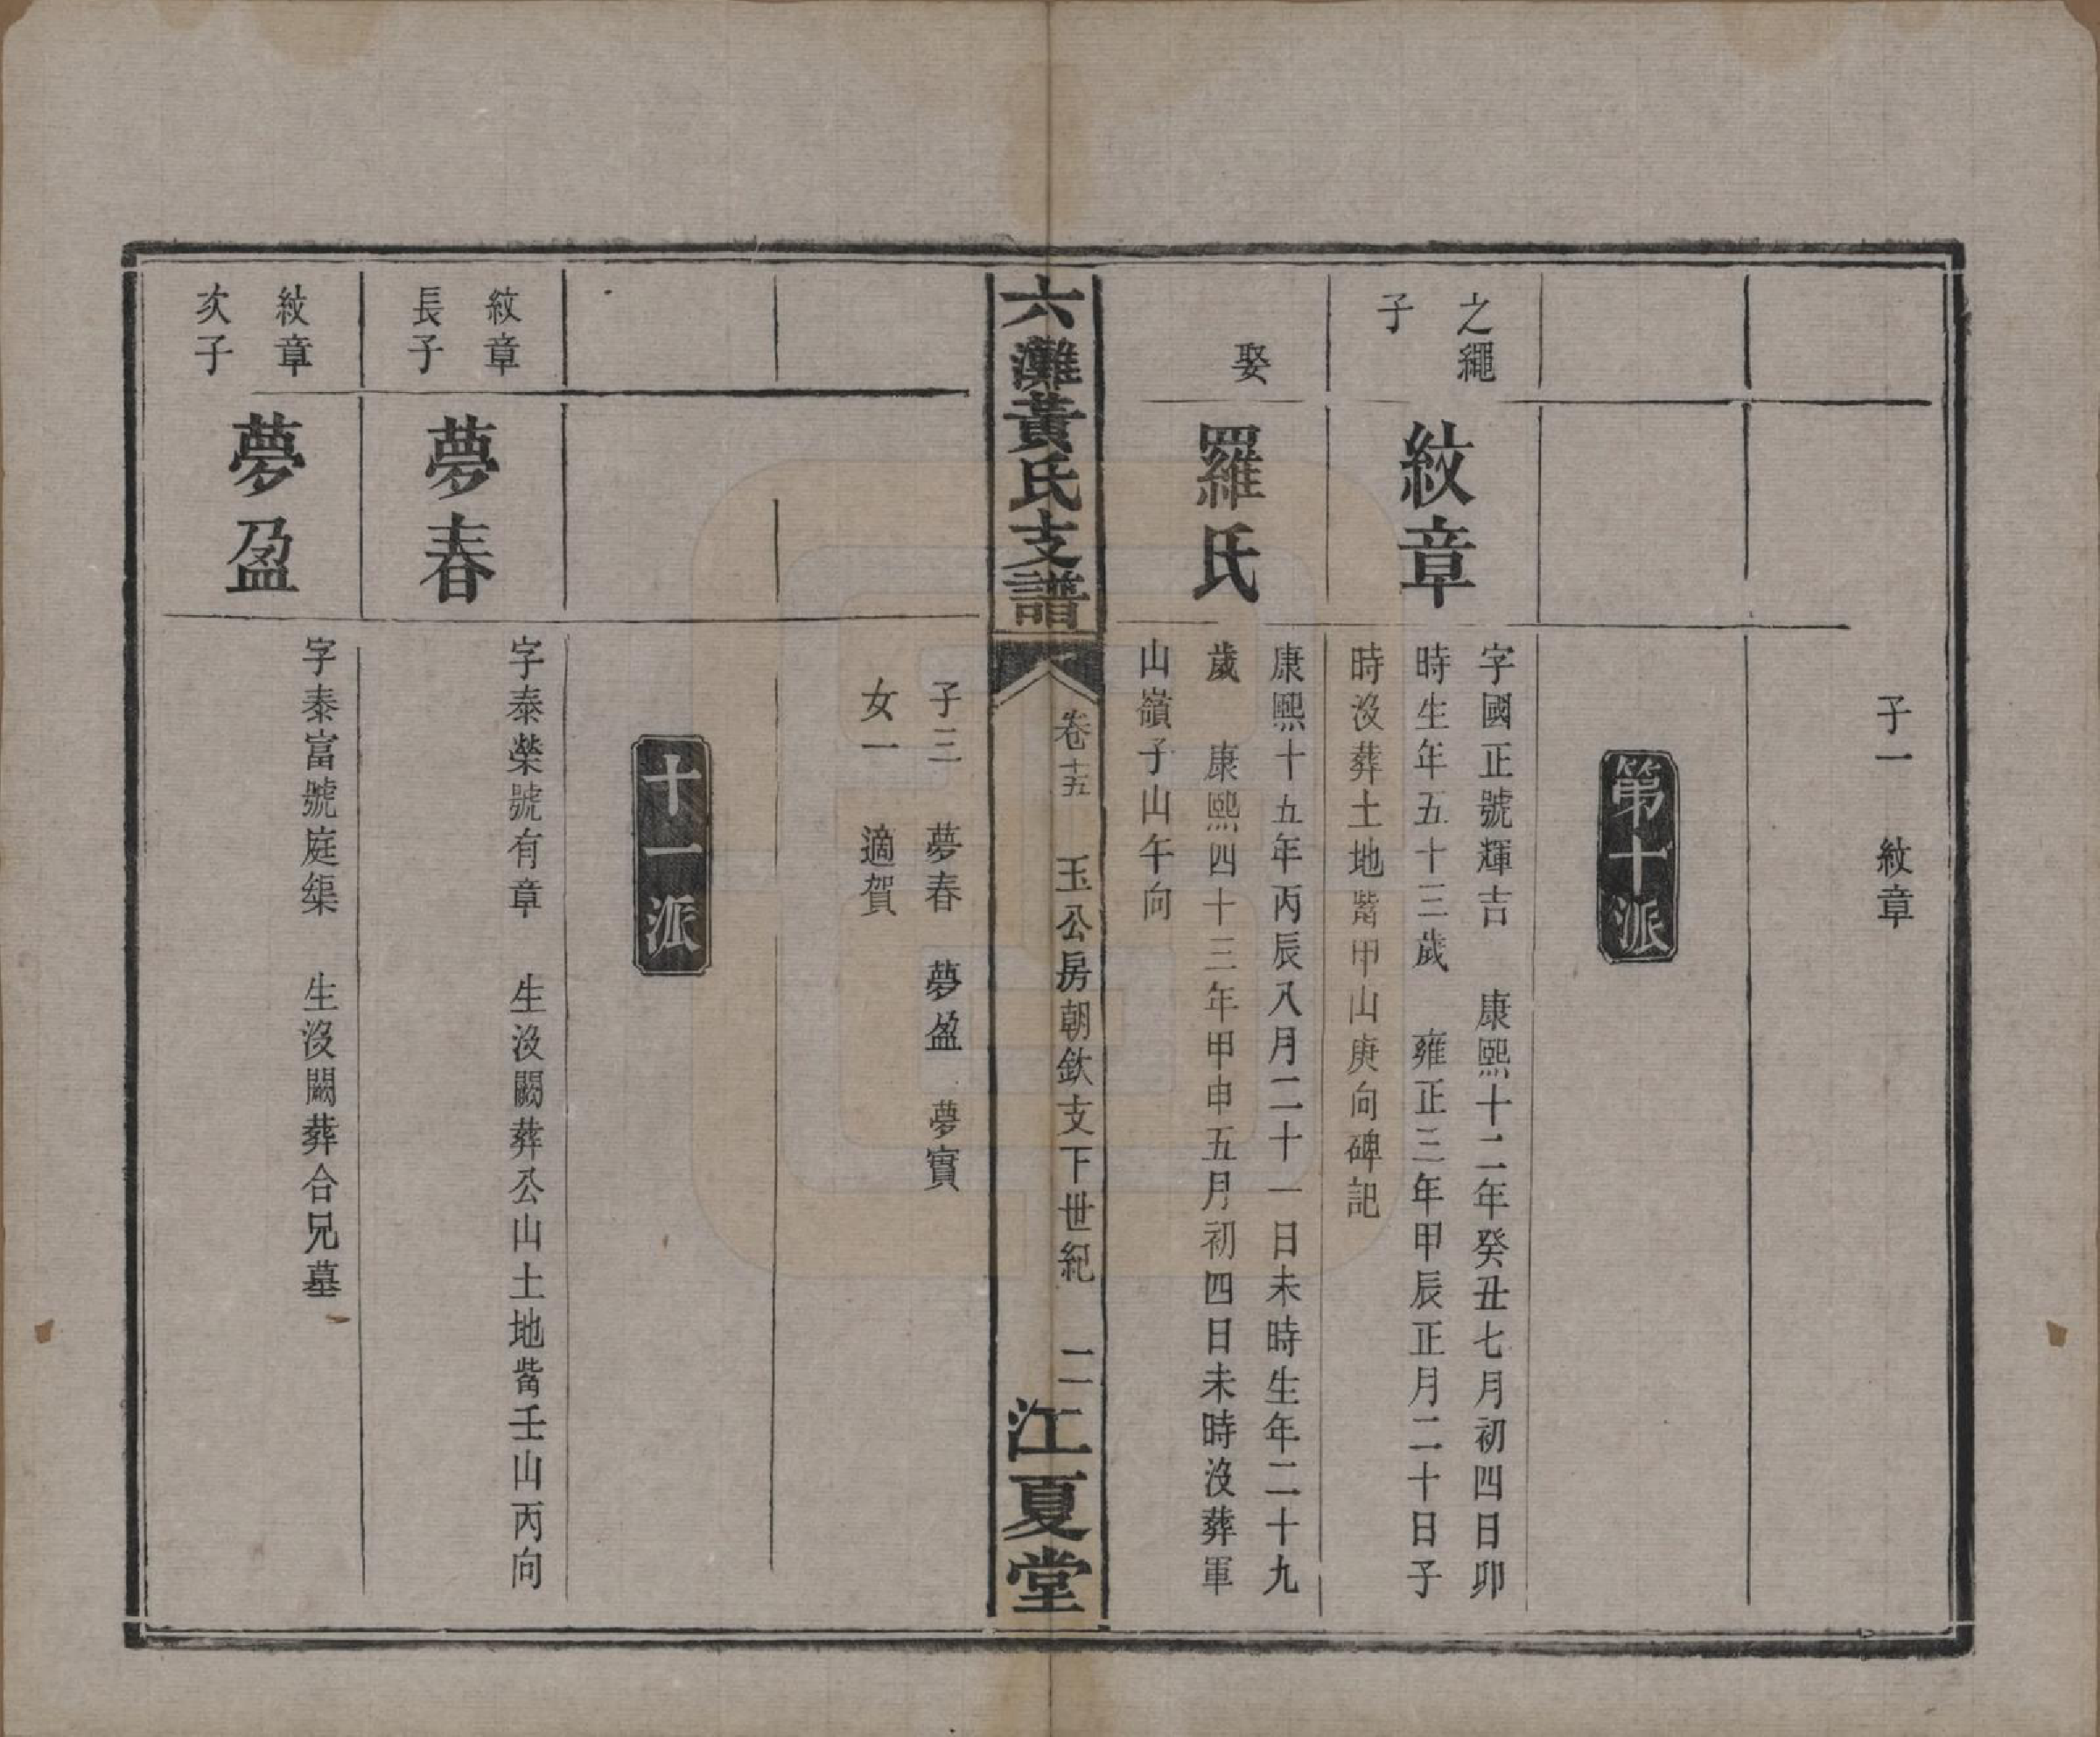 子一　紋章
第十派
之繩
子
紋章
字國正號輝吉　康熙十二年癸丑七月初四日卯
時生年五十三歲　雍正三年甲辰正月二十日子
時沒葬土地觜甲山庚向碑記
娶
羅氏
康熙十五年丙辰八月二十一日未時生年二十九
歲　康熙四十三年甲申五月初四日未時沒葬軍
山嶺子山午向
六灘黃氏支譜
卷十五　玉公房朝欽支下世紀　二
江夏堂
子三　夢春　夢盈　夢實
女一　適賀
十一派
紋章
長子
夢春
字泰榮號有章　生沒闕葬公山土地觜壬山丙向
紋章
次子
夢盈
字泰富號庭榘　生沒闕葬合兄墓